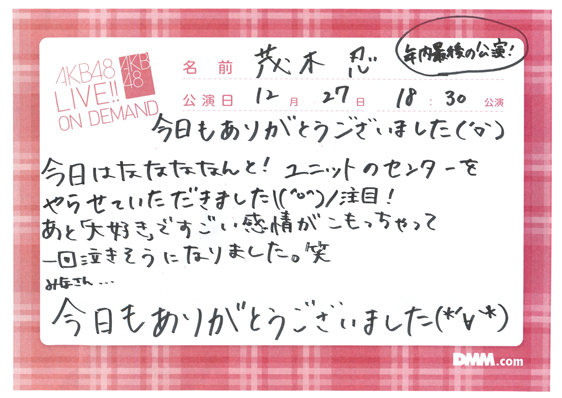 AKB48
LIVE!!
ON DEMAND
AKB
48
名前 茂木 忍
年内最後の公演!
公演日 12月 27日 18:30 公演
今日もありがとうございました('o')
今日はなななななんと! ユニットのセンターを
やらせていただきました\(^o^)/注目!
あと「大好き」ですごい感情がこもっちゃって
一回泣きそうになりました。笑
みなさん...
今日もありがとうございました(*'∀'*)
DMM.com